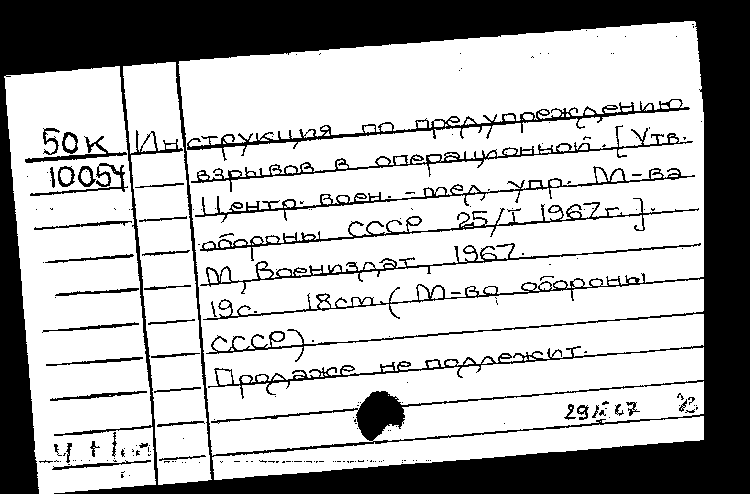 50к Инструкция по предупреждению
10054 взрывов в операционной. [Утв.
Центр. воен.-мед. упр. М-ва
обороны СССР 25/I 1967г.].
М, Воениздат, 1967.
19с. 18см. (М-во обороны
СССР).
Продаже не подлежит.